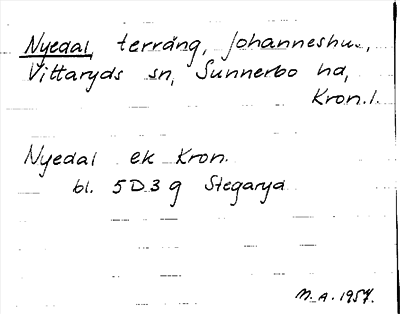 Nyedal, terräng, Johanneshus,
Vittaryds sn, Sunnerbo hd,
Kron.l.
Nyedal ek Kron.
bl. 5D3g Stegaryd
M.A. 1957.